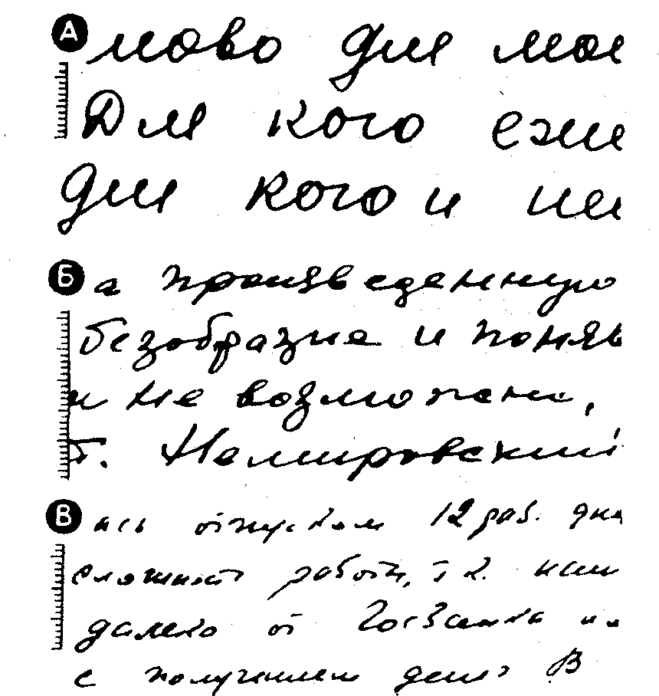 А
мово для мое
Для кого ежи
для кого и ни
Б
а произведенную
безобразие и поняв
и не возможно,
Т. Немировский
В
ась отпуском 12 раб. дне
сложность работы, т.к. наш
далеко от Госбанка
с получением денег В